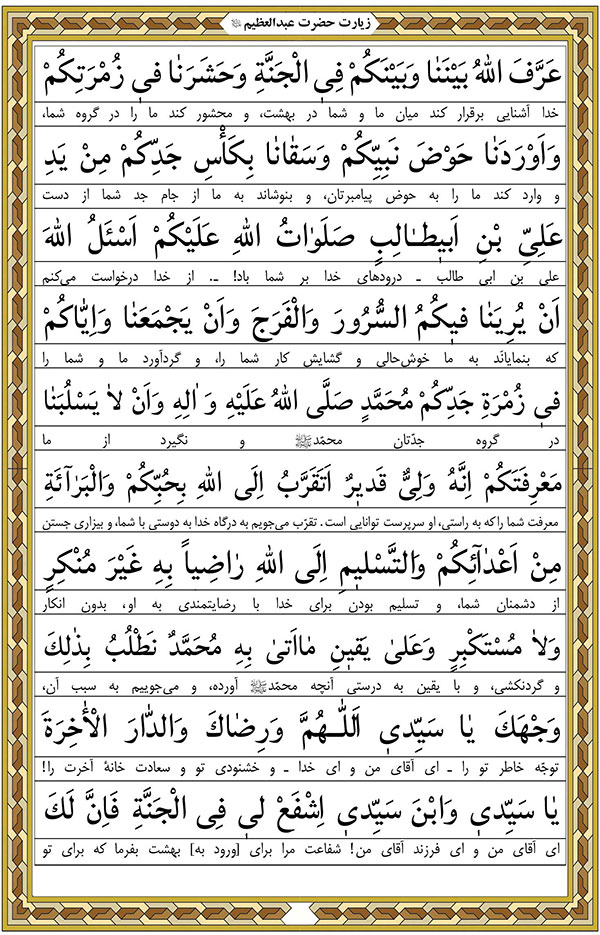 زیارت حضرت عبدالعظیم
عَرَّفَ اللهُ بَيْنَنٰا وَبَيْنَكُمْ فِي الْجَنَّةِ وَحَشَرَنٰا في زُمْرَتِكُمْ
خدا آشنایی برقرار کند میان ما و شما در بهشت، و محشور کند ما را در گروه شما،
وَاَوْرَدَنٰا حَوْضَ نَبِيِّكُمْ وَسَقٰانٰا بِكَأْسِ جَدِّكُمْ مِنْ يَدِ
و وارد کند ما را به حوض پیامبرتان، و بنوشاند به ما از جام جد شما از دست
عَلِيِّ بْنِ اَبيطٰالِبٍ صَلَوٰاتُ اللهِ عَلَيْكُمْ اَسْئَلُ اللهَ
علی بن ابی طالب ـ درودهای خدا بر شما باد! ـ. از خدا درخواست می‌کنم
اَنْ يُرِيَنٰا فيكُمُ السُّرُورَ وَالْفَرَجَ وَاَنْ يَجْمَعَنٰا وَاِيّٰاكُمْ
که بنمایاند به ما خوش‌حالی و گشایش کار شما را، و گردآورد ما و شما را
في زُمْرَةِ جَدِّكُمْ مُحَمَّدٍ صَلَّى اللهُ عَلَيْهِ وَ اٰلِهِ وَاَنْ لاٰ يَسْلُبَنٰا
در گروه جدّتان محمّد ﷺ و نگیرد از ما
مَعْرِفَتَكُمْ اِنَّهُ وَلِيٌّ قَديرٌ اَتَقَرَّبُ اِلَى اللهِ بِحُبِّكُمْ وَالْبَرٰآئَةِ
معرفت شما را که به راستی، او سرپرست توانایی است. تقرّب می‌جویم به درگاه خدا به دوستی با شما، و بیزاری جستن
مِنْ اَعْدٰآئِكُمْ وَالتَّسْليمِ اِلَى اللهِ رٰاضِياً بِهِ غَيْرَ مُنْكِرٍ
از دشمنان شما، و تسلیم بودن برای خدا با رضایتمندی به او، بدون انکار
وَلاٰ مُسْتَكْبِرٍ وَعَلىٰ يَقينِ مٰااَتىٰ بِهِ مُحَمَّدٌ نَطْلُبُ بِذٰلِكَ
و گردنکشی، و با یقین به درستی آنچه محمّد ﷺ آورده، و می‌جوییم به سبب آن،
وَجْهَكَ يٰا سَيِّدي اَللّٰهُمَّ وَرِضٰاكَ وَالدّٰارَ الْأٰخِرَةَ
توجّه خاطر تو را ـ ای آقای من و ای خدا ـ و خشنودی تو و سعادت خانهٔ آخرت را!
يٰا سَيِّدي وَابْنَ سَيِّدي اِشْفَعْ لي فِي الْجَنَّةِ فَاِنَّ لَكَ
ای آقای من و ای فرزند آقای من! شفاعت مرا برای [ورود به] بهشت بفرما که برای تو